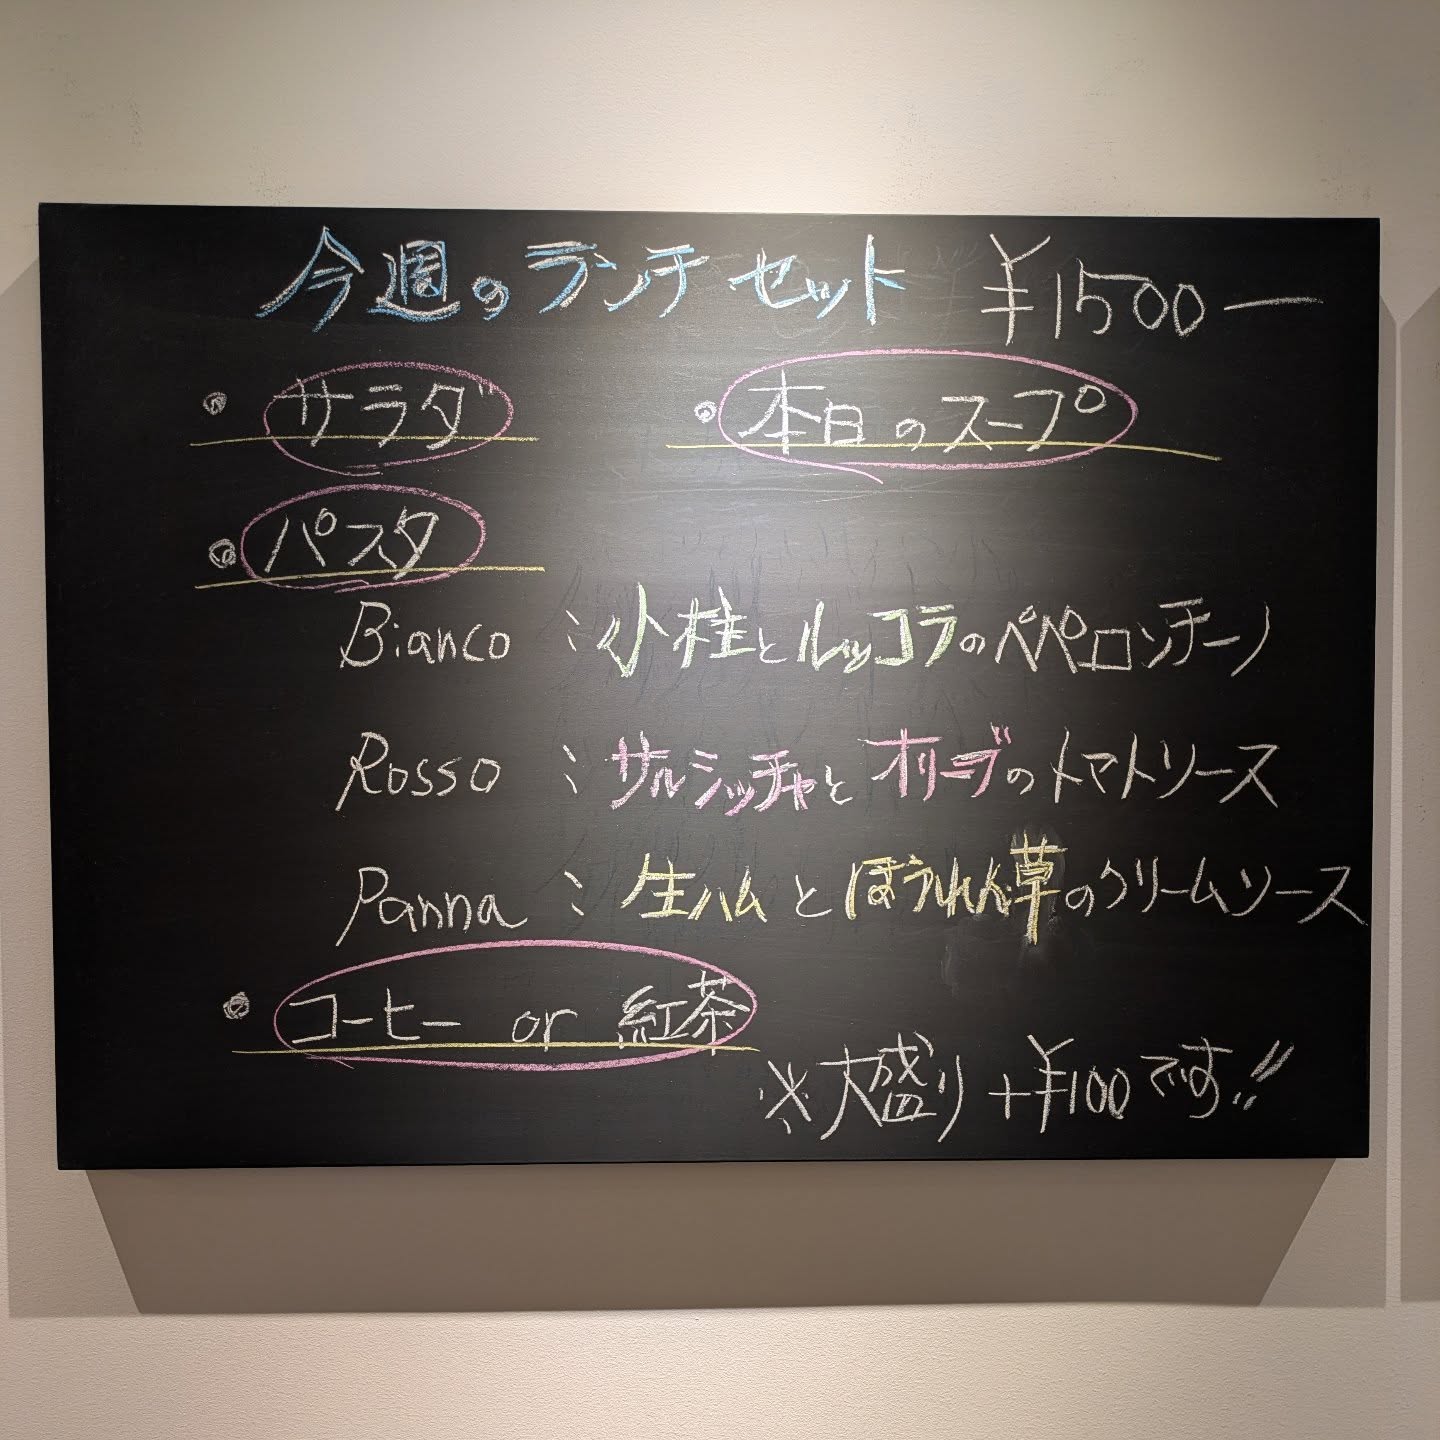 今週のランチセット ¥1500ー
・サラダ ・本日のスープ
・パスタ
Bianco : 小柱とルッコラのペペロンチーノ
Rosso : サルシッチャとオリーブのトマトソース
Panna : 生ハムとほうれん草のクリームソース
・コーヒー or 紅茶
※大盛り+¥100です!!